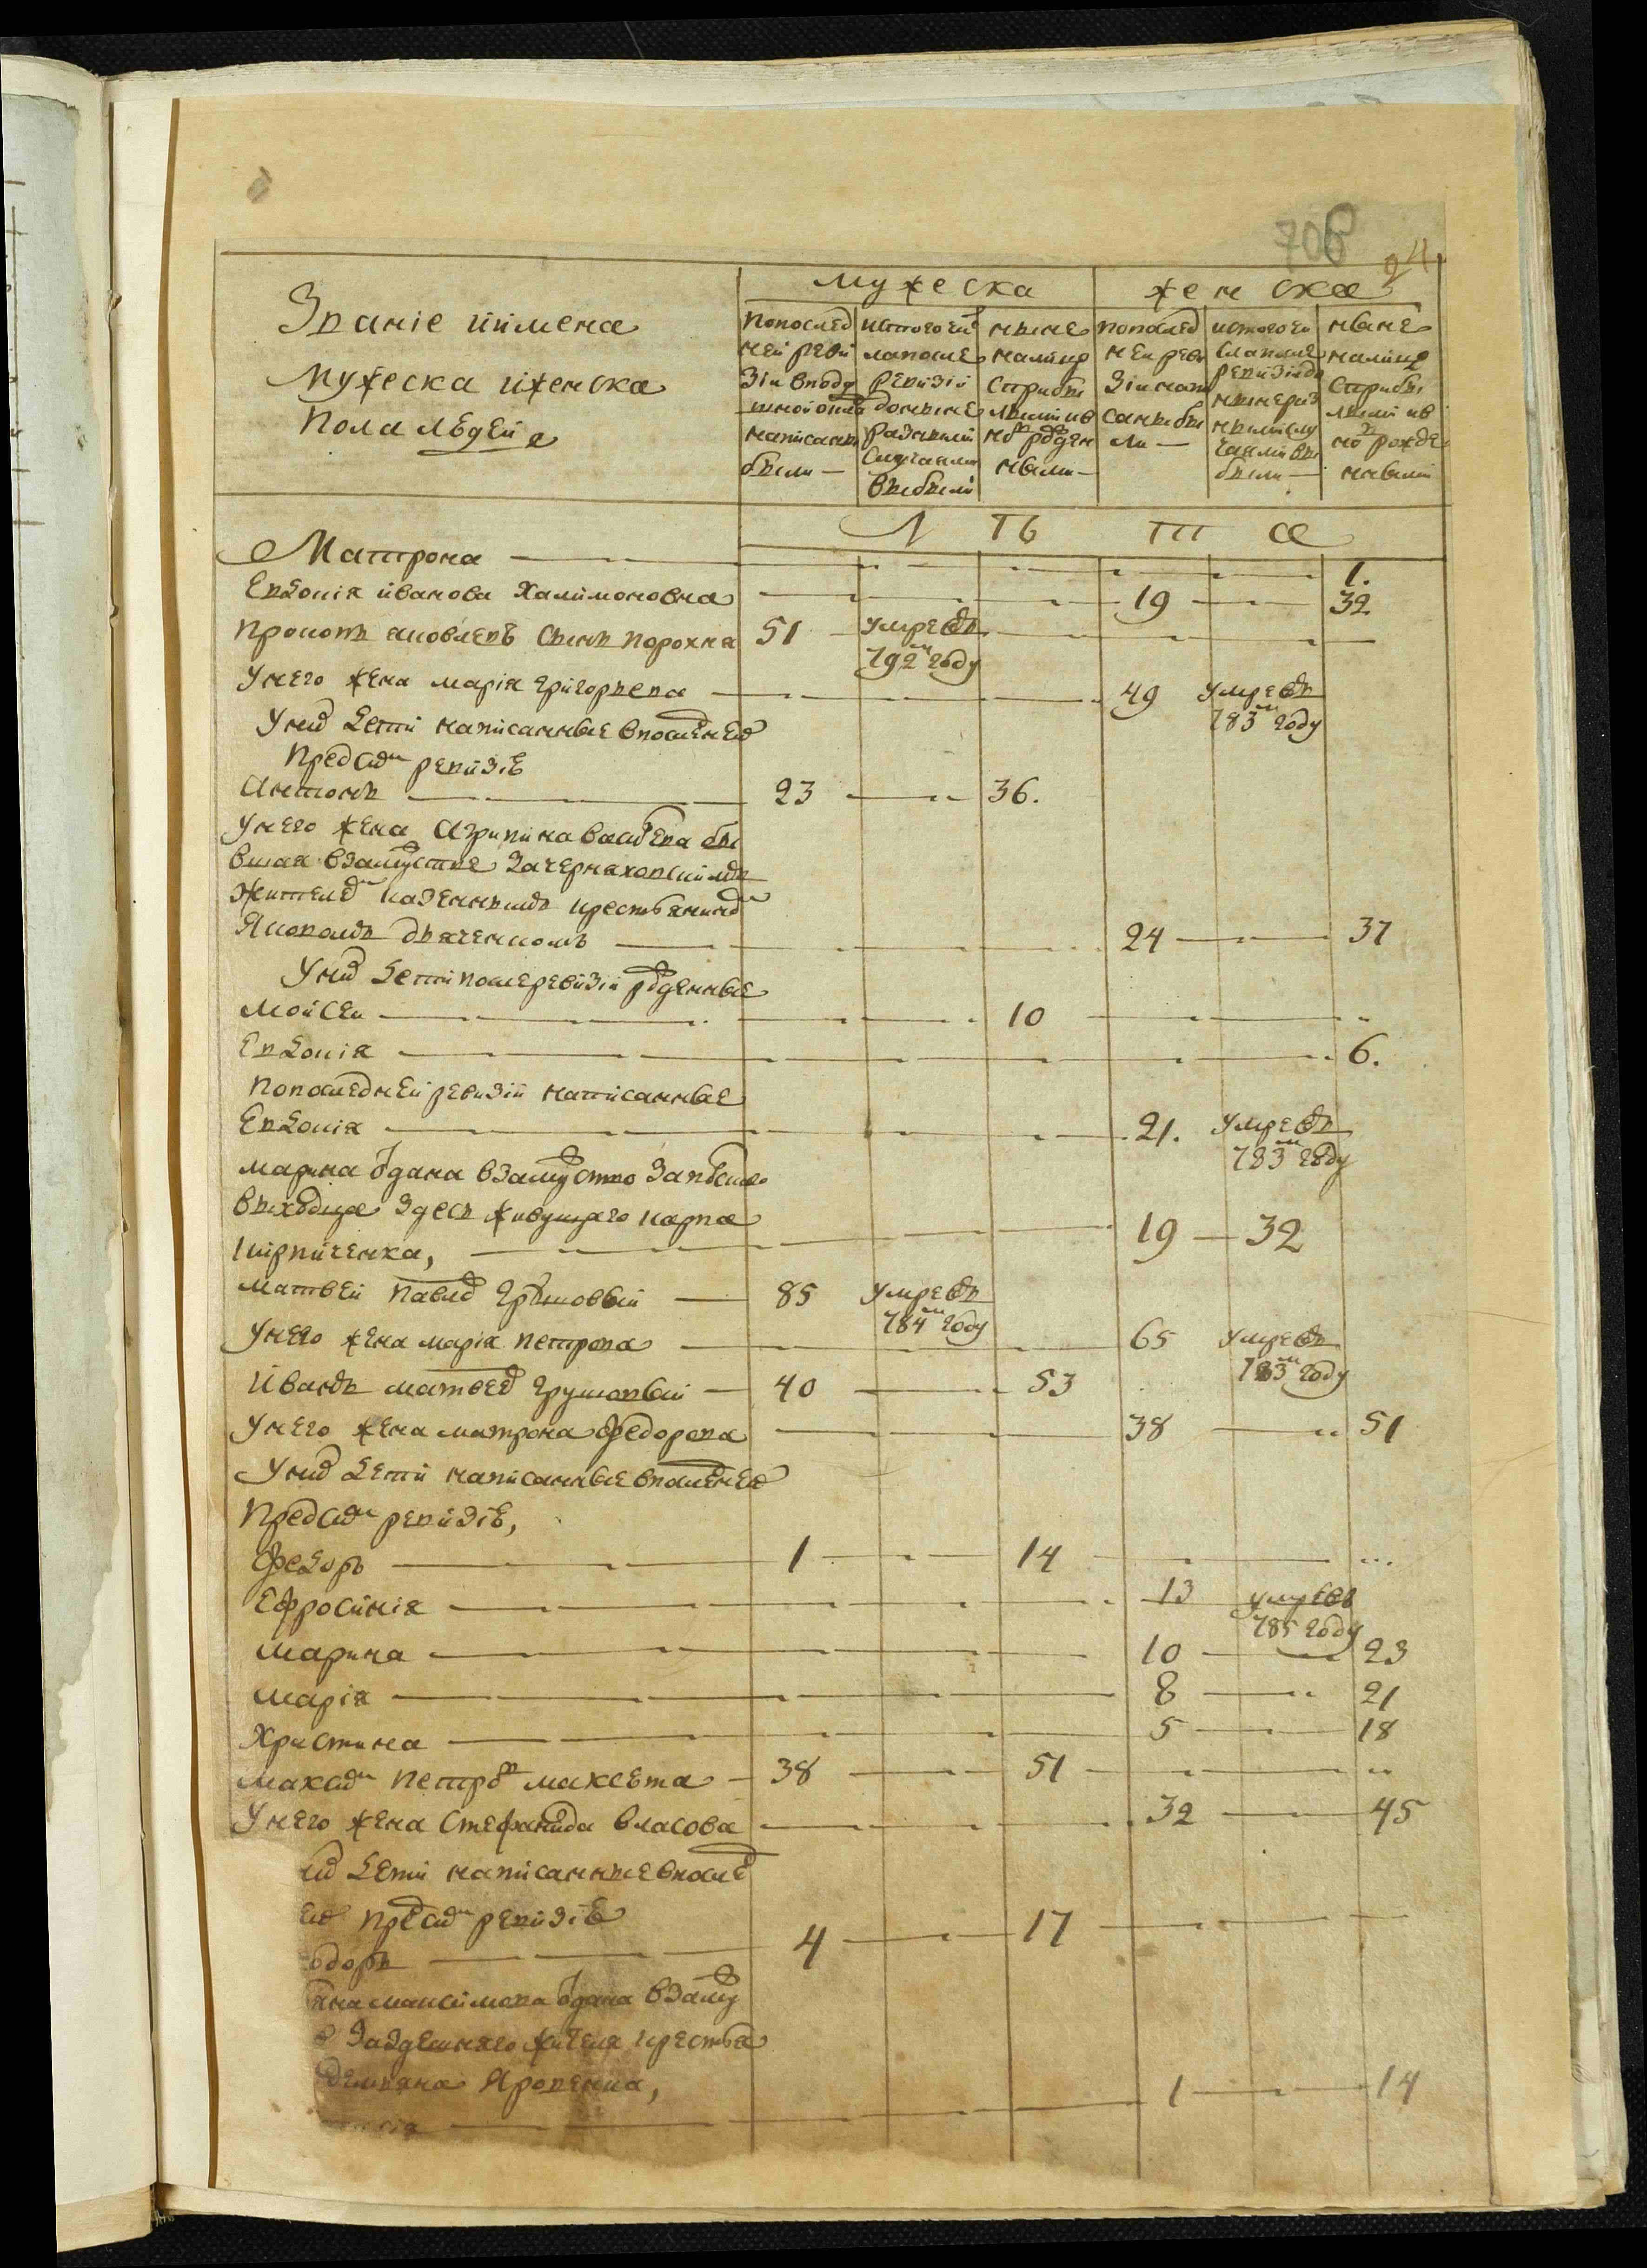 708
94
Званіе иимена
мужеска иженска
пола людей
мужеска
женска
Попослед
ней реви
зіи вподу
шной окладъ
написаны
были —
истого
послѣ
ревизіи
доныне
разными
случаями
выбыли
ныне
налицо
старыи
лыми ив
новь рожден
ными —
Попослед
ней реви
зіи напи
саны бы
ли —
истого
послѣ
ревизіи до
ныне раз
ными слу
чаями вы
были —
ныне
налицо
лыми ив
новь рожде
ными
л ѣ т а
Матрона — 1.
Евдокія иванова Халимоновна — 19 — 32
Прокопъ яковлевъ сынъ порохня 51 умре въ
792м году
Унего жена марія григорьева — 49 умре въ
783м году
Уних дети написанные впоследней
пред сим ревизіѣ
Антонъ — 23 — 36.
Унего жена Агрипина васильева бы
вшая взамужстве зачерняховскимъ
жителемъ казеннымъ крестьянином
Яковомъ дяченкомъ — 24 — 37
Уних дети после ревизіи рожденные
Мойсей — 10
Евдокія — 6.
попоследней ревизіи написанные
Евдокія — 21. умре въ
783м году
марина одана взамужство за
выходца здесь живущаго карпа
кирпиченка, — 19 — 32
матвей павлов грушовый — 85 умре въ
784м году
Унего жена марія петрова — 65 умре въ
783м году
Иванъ матвеев грушовый — 40 — 53
Унего жена матрона федорова — 38 — 51
Уних дети написанные впоследней
пред сим ревизіѣ,
федоръ — 1 — 14
Ефросинія — 13 умре въ
785 году
марина — 10 — 23
марія — 8 — 21
Христина — 5 — 18
максим петров максета — 38 — 51
Унего жена Стефанида власова — 32 — 45
их дети написанные впослед
ей пред сим ревизіѣ
одоръ — 4 — 17
максимова одана взамуж
зaздешняго жителя крестья
демьяна Яровенка,
1 — 14